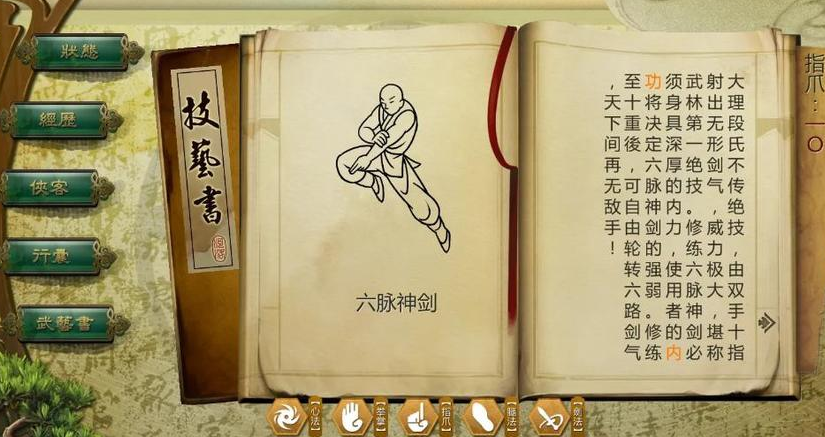 狀態
經歷
俠客
行囊
武藝書
技藝書
六脉神剑
大理段氏不传绝技，由双手十指
射出无形剑气，威力极大，堪称
武林第一绝技。修练六脉神剑必
须身具深厚的内力，使用者的内
功将决定六脉神剑的强弱。修练
至十重後，可自由轮转六路剑气
，天下间再无敌手！
指爪：一〇
【心法】
【拳掌】
【指爪】
【腿法】
【剑法】